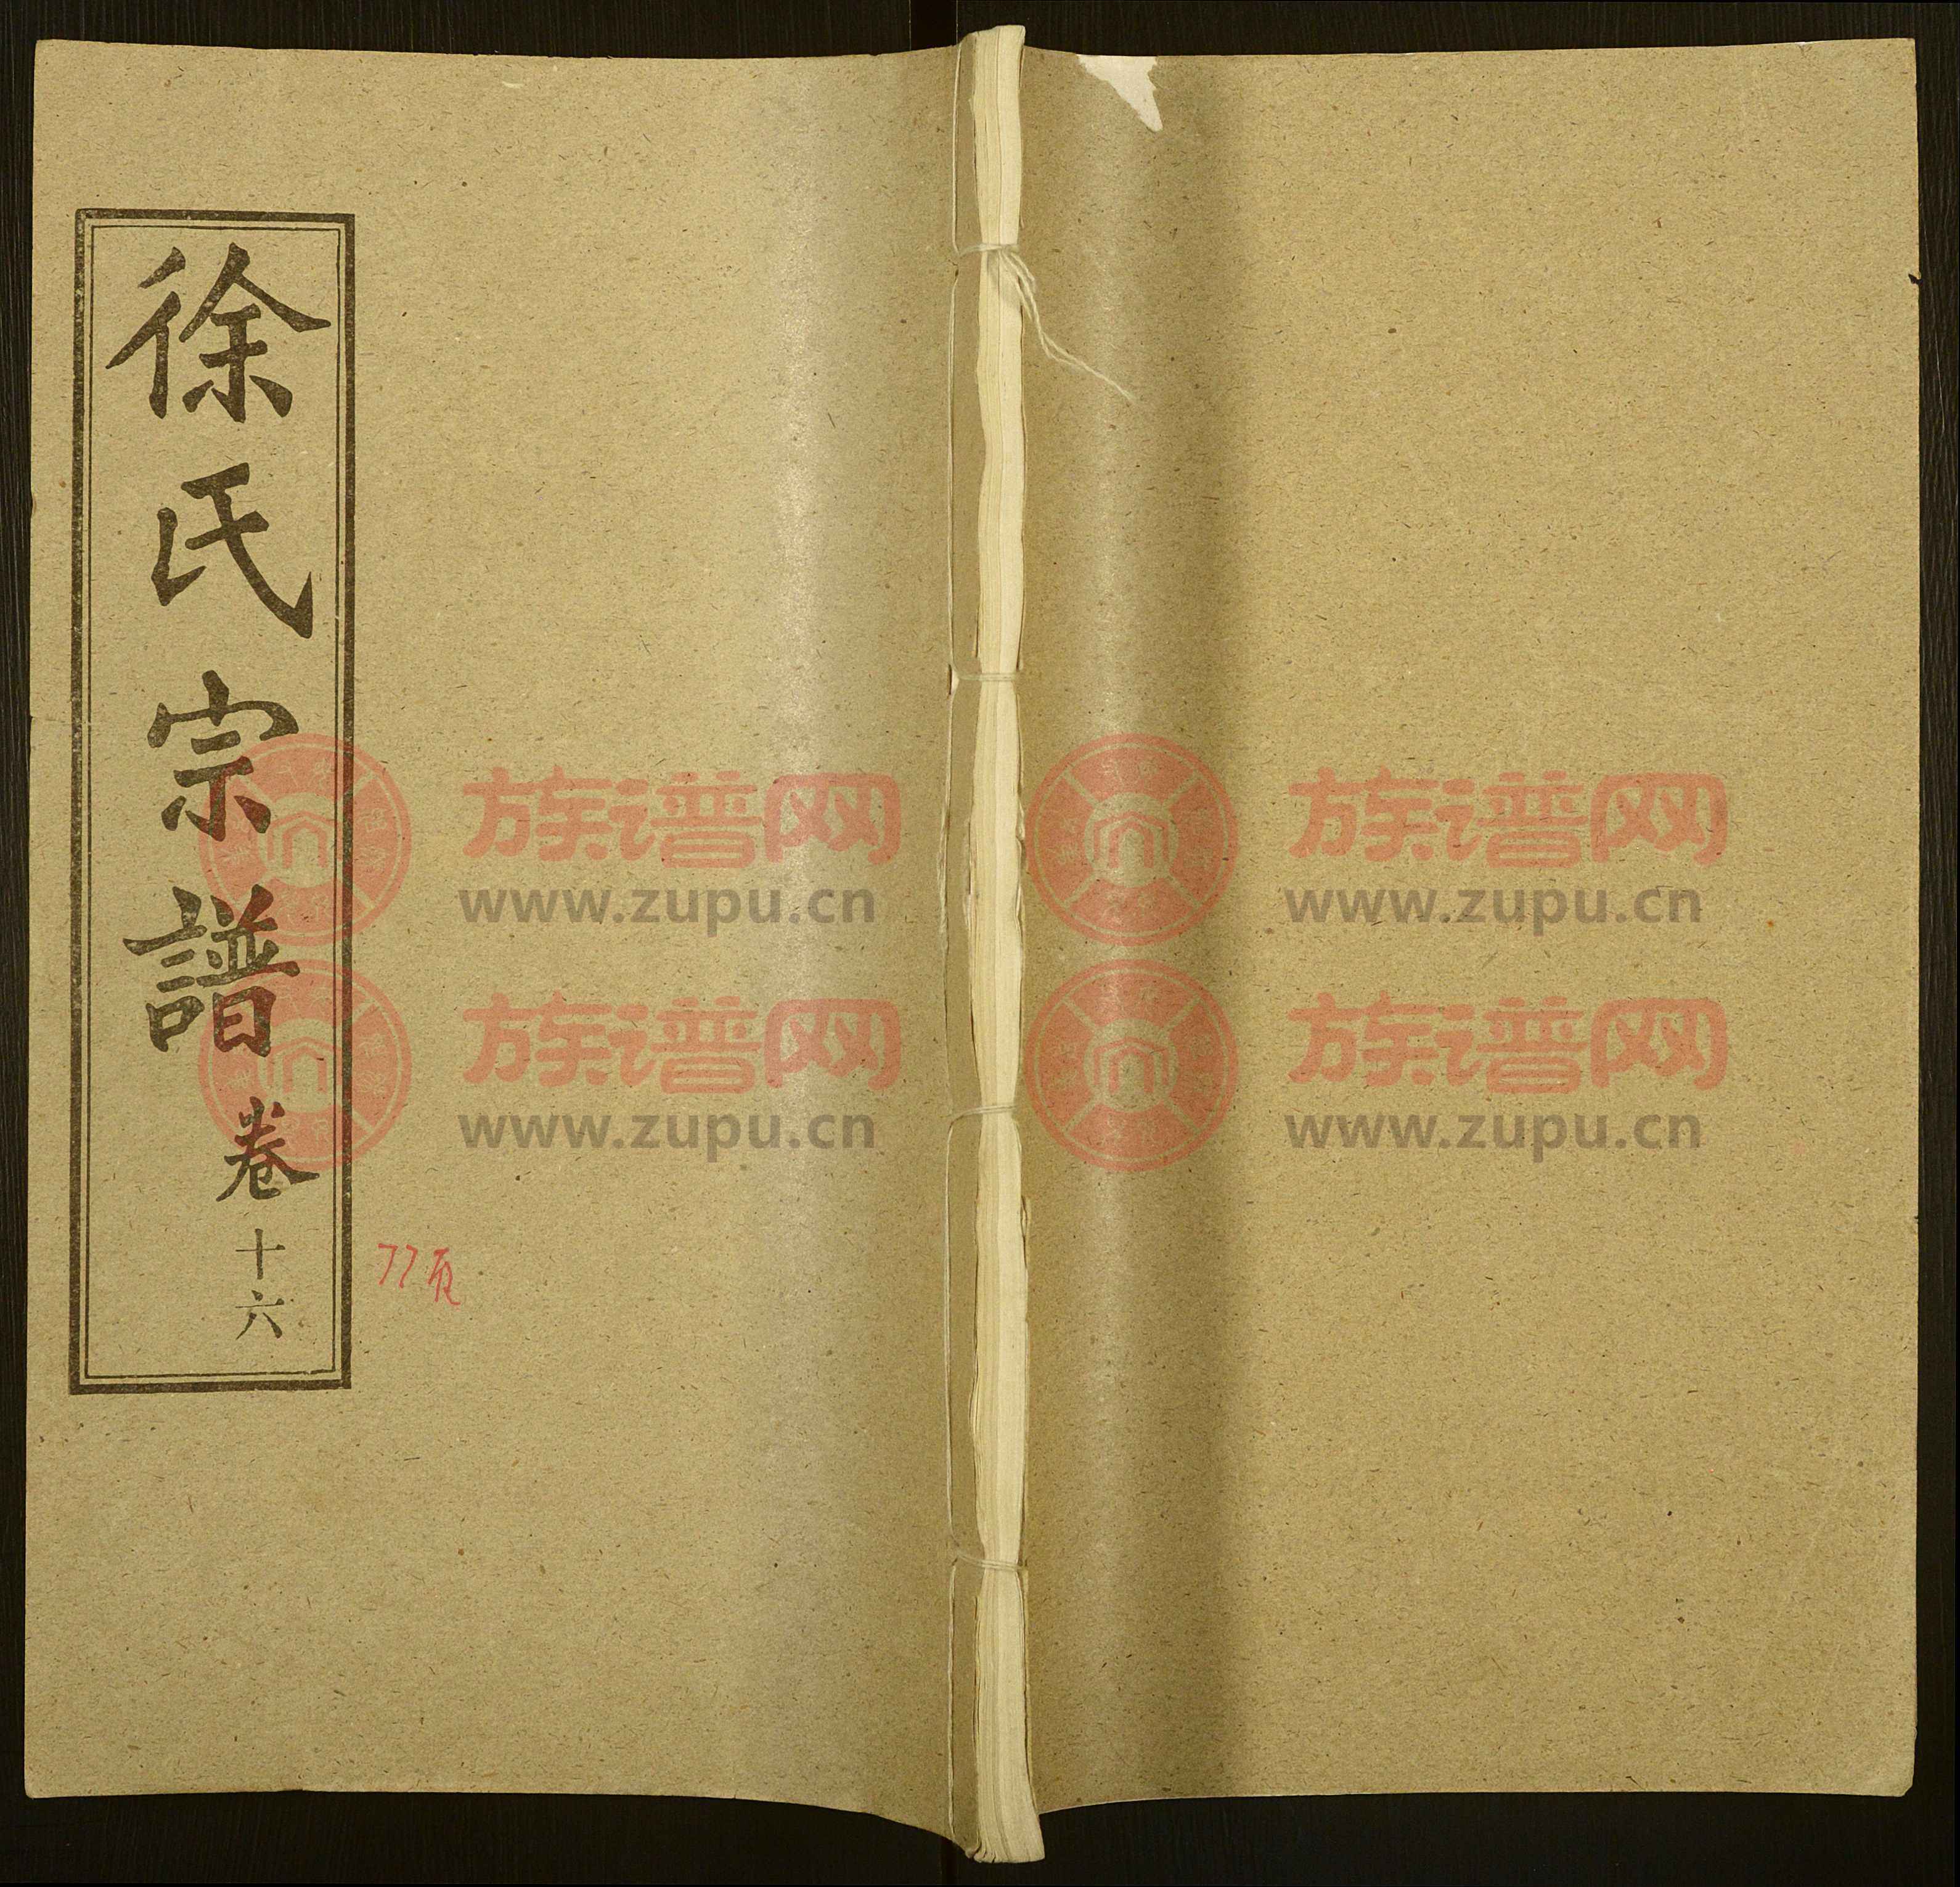 徐氏宗譜 卷十六
77页
族谱网
www.zupu.cn
族谱网
www.zupu.cn
族谱网
www.zupu.cn
族谱网
www.zupu.cn